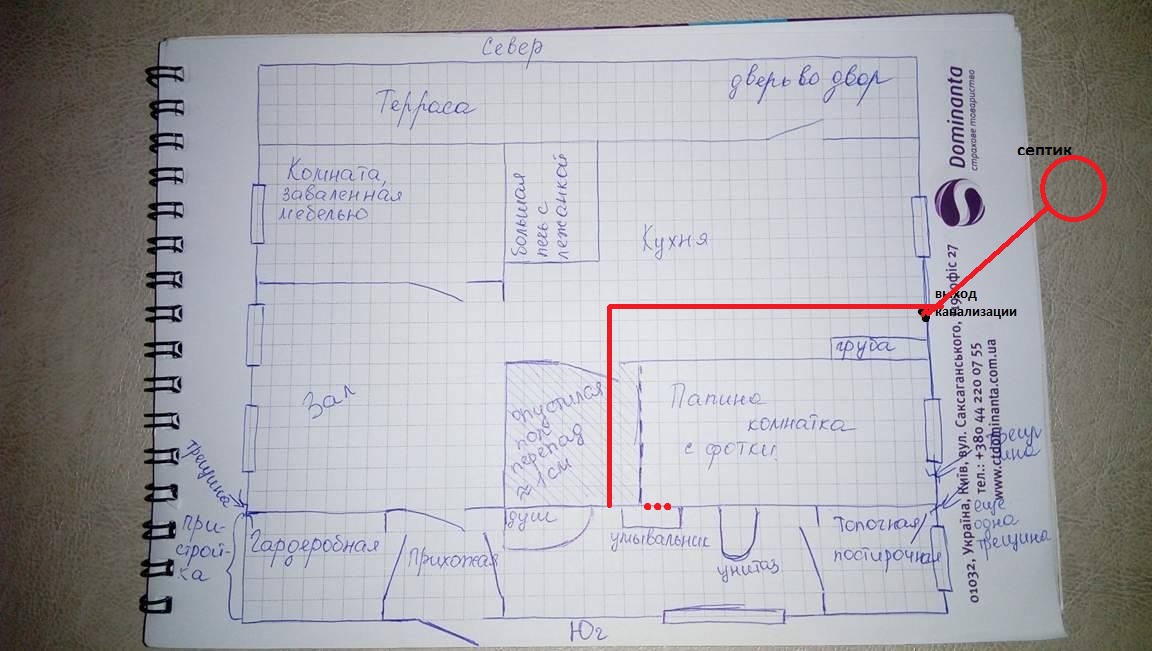 Север
Терраса
дверь во двор
Комната,
заваленная
мебелью
Большая
печь с
лежанкой
Кухня
септик
выход
канализации
груба
Зал
опустился
пол
перепад
≈ 1 см
Папина
комнатка
с фотки
трещина
трещи
на
еще
одна
трещина
при-
строй-
ка
Гардеробная
Прихожая
душ
умывальник
унитаз
Топочная/
постирочная
Юг
Dominanta
страхове товариство
01032, Україна, Київ, вул. Саксаганського,
офіс 27
тел.: +380 44 220 07 55
www.ctdominanta.com.ua